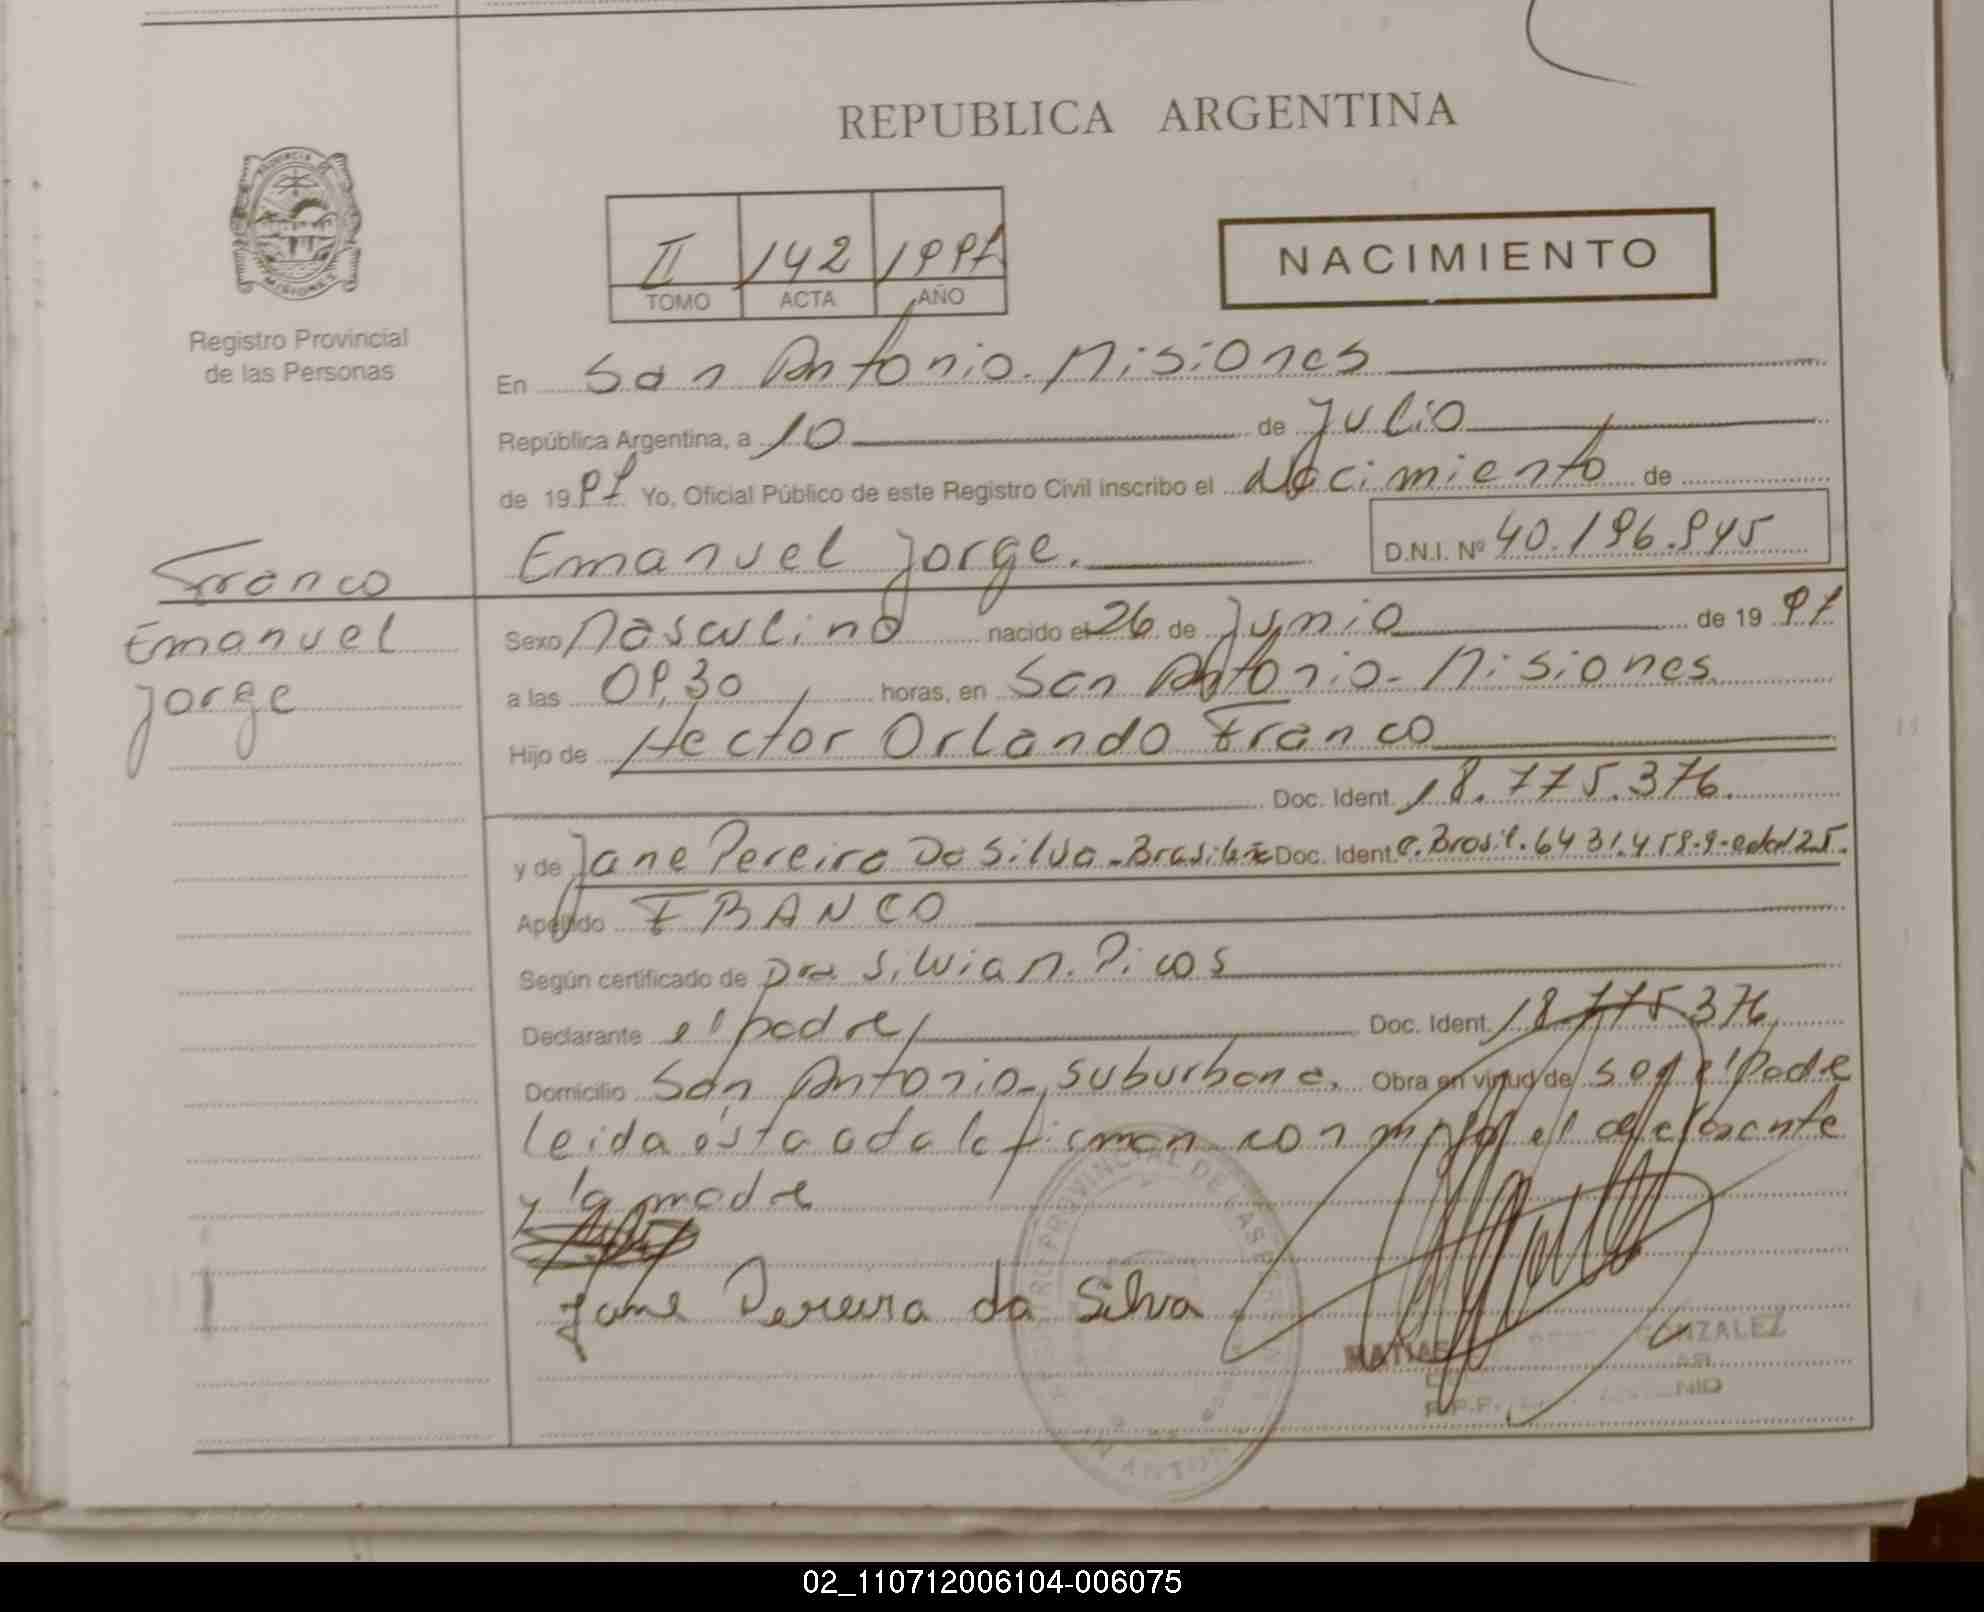 REPUBLICA ARGENTINA
PROVINCIA DE
MISIONES
Registro Provincial
de las Personas
II 142 1997
TOMO ACTA AÑO
NACIMIENTO
En San Antonio. Misiones
República Argentina, a 10 de Julio
de 1997 Yo, Oficial Público de este Registro Civil inscribo el Nacimiento de
Emanuel Jorge. D.N.I. Nº 40.196.945
Franco
Emanuel
Jorge
Sexo Masculino nacido el 26 de Junio de 1997
a las 09,30 horas, en San Antonio - Misiones
Hijo de Hector Orlando Franco
Doc. Ident. 18.775.376.
y de Jane Pereira Da Silva - Doc. Ident. C. Brasil. 25.
Apellido FRANCO
Según certificado de Dra Silvia N. Picos
Declarante el padre Doc. Ident. 18.775.376
Domicilio San Antonio - suburbana. Obra en virtud de ser el Padre
leida esta acta la firman conmigo el declarante
y la madre
Jane Pereira da Silva
MATIAS GONZALEZ
02_110712006104-006075